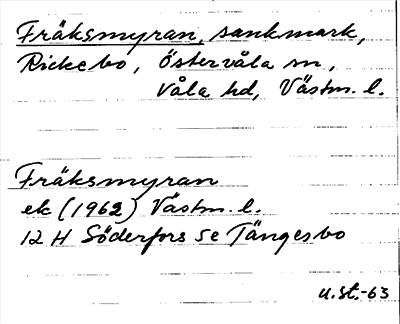 Fräksmyran, sankmark,
Rickebo, Östervåla sn,
Våla hd, Västm. l.
Fräksmyran
ek (1962) Västm. l.
12 H Söderfors 5e Tängesbo
u.st.-63